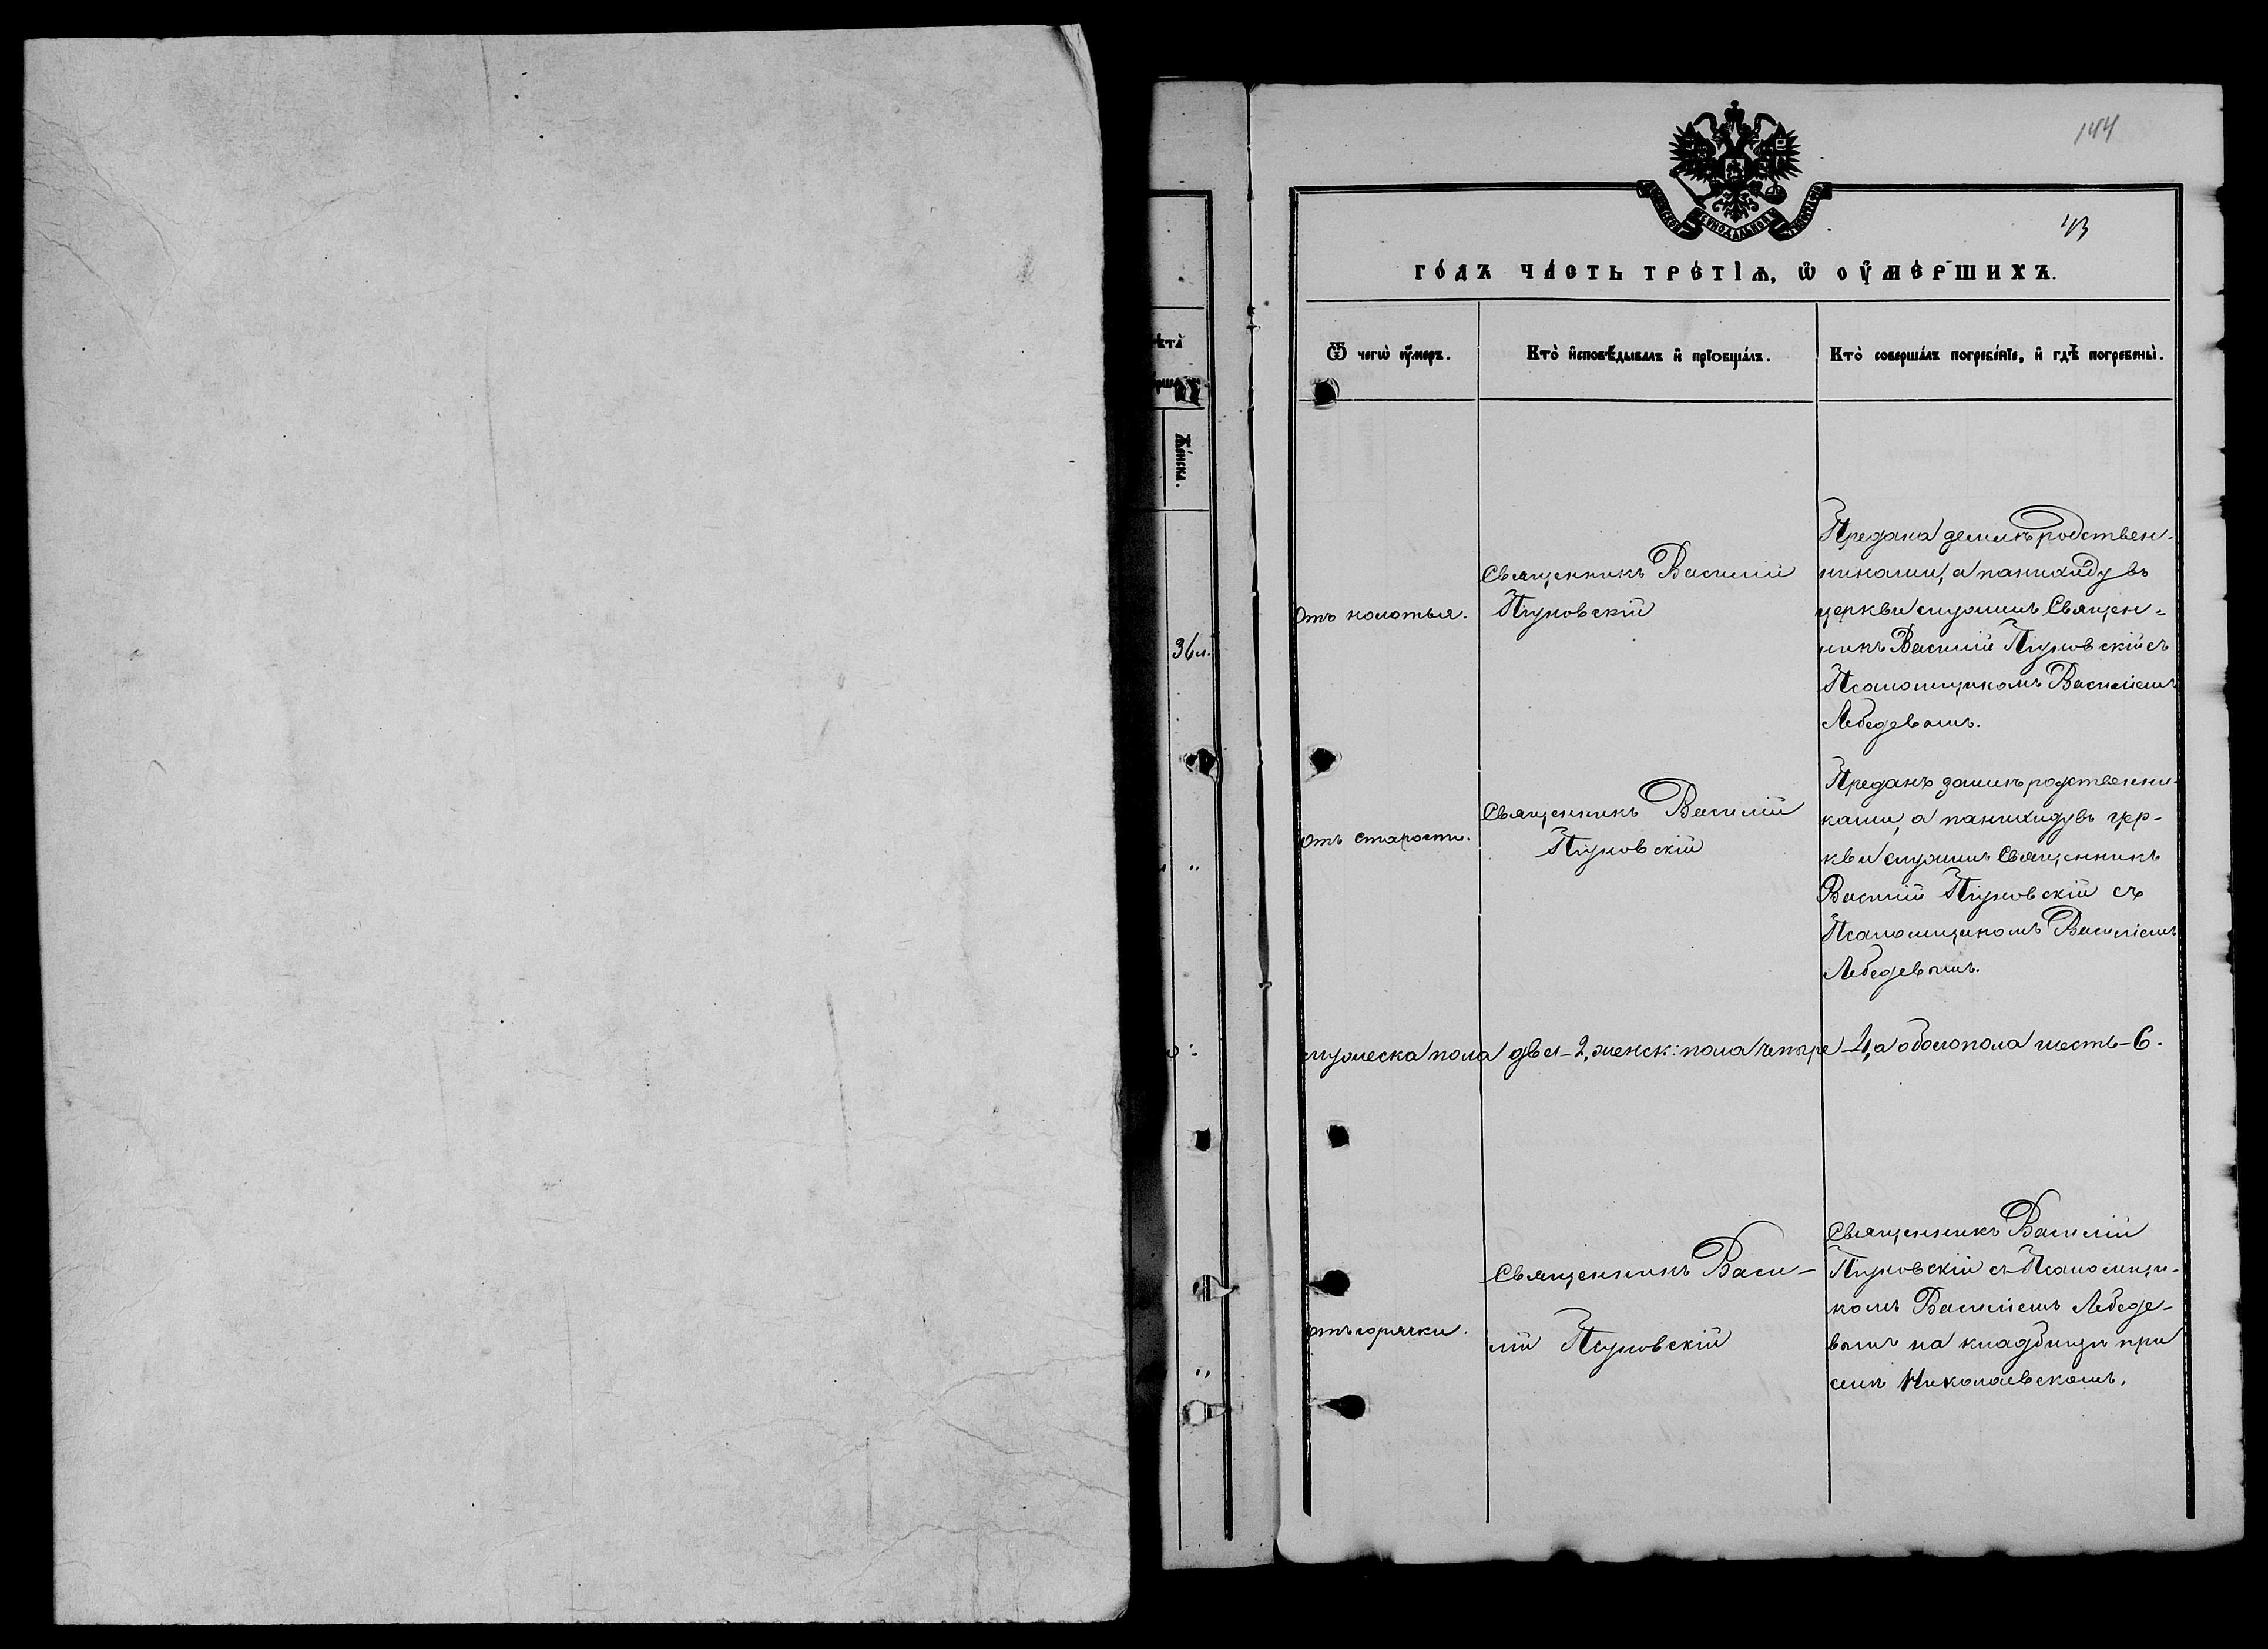 144
43
МОСКОВСКОЙ СѴНОДАЛЬНОЙ ТѴПОГРАФІИ
го́дъ ча́сть тре́тїѧ, ѡ҆ ᲂу҆ме́ршихъ.
Ѿ чегѡ̀ ᲂу҆́меръ.
Кто̀ и҆сповѣ́дывалъ и҆ прїобща́лъ.
Кто̀ соверша́лъ погребе́нїе, и҆ гдѣ̀ погребены̀.
Же́нска.
36 л.
отъ колотья.
Священникъ Василій
Пуновскій
Предана земли родствен-
никами, а панихиду въ
церкви служилъ Священ=
никъ Василій Пуновскій съ
Псаломщикомъ Василіемъ
Лебедевымъ.
отъ старости.
Священникъ Василій
Пуновскій
Преданъ земли родственни-
ками, а панихиду въ цер-
кви служилъ Священникъ
Василій Пуновскій съ
Псаломщикомъ Василіемъ
Лебедевымъ.
мужеска пола два - 2, женск: пола четыре - 4, а обоего пола шесть - 6.
отъ горячки.
Священникъ Васи-
лій Пуновскій
Священникъ Василій
Пуновскій съ Псаломщи-
комъ Василіемъ Лебеде-
вымъ на кладбищи при
селѣ Николаевскомъ.